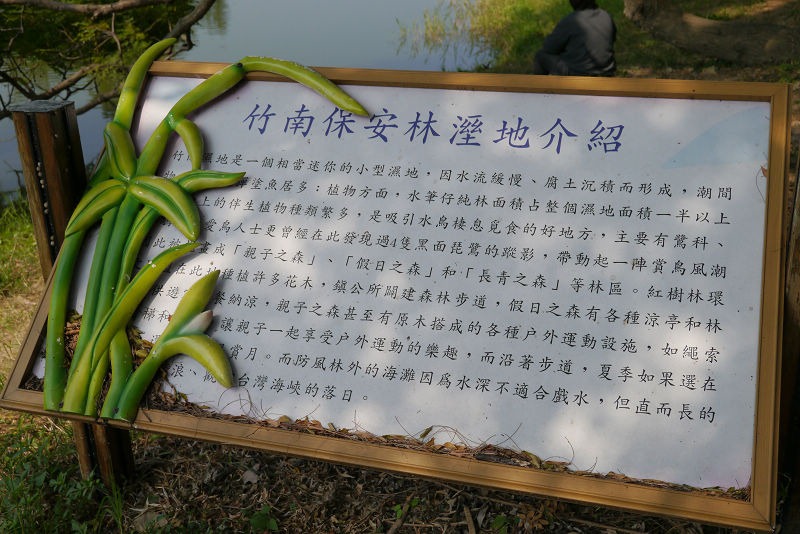 竹南保安林溼地介紹
竹南濕地是一個相當迷你的小型濕地，因水流緩慢、腐土沉積而形成，潮間
塗魚居多；植物方面，水筆仔純林面積占整個濕地面積一半以上
上的伴生植物種類繁多，是吸引水鳥棲息覓食的好地方，主要有鷺科、
愛鳥人士更曾經在此發現過4隻黑面琵鷺的蹤影，帶動起一陣賞鳥風潮
此被畫成「親子之森」、「假日之森」和「長青之森」等林區。紅樹林環
在此種植許多花木，鎮公所闢建森林步道，假日之森有各種涼亭和林
供遊客納涼，親子之森甚至有原木搭成的各種戶外運動設施，如繩索
梯和讓親子一起享受戶外運動的樂趣，而沿著步道，夏季如果選在
賞月。而防風林外的海灘因爲水深不適合戲水，但直而長的
浪、觀台灣海峽的落日。